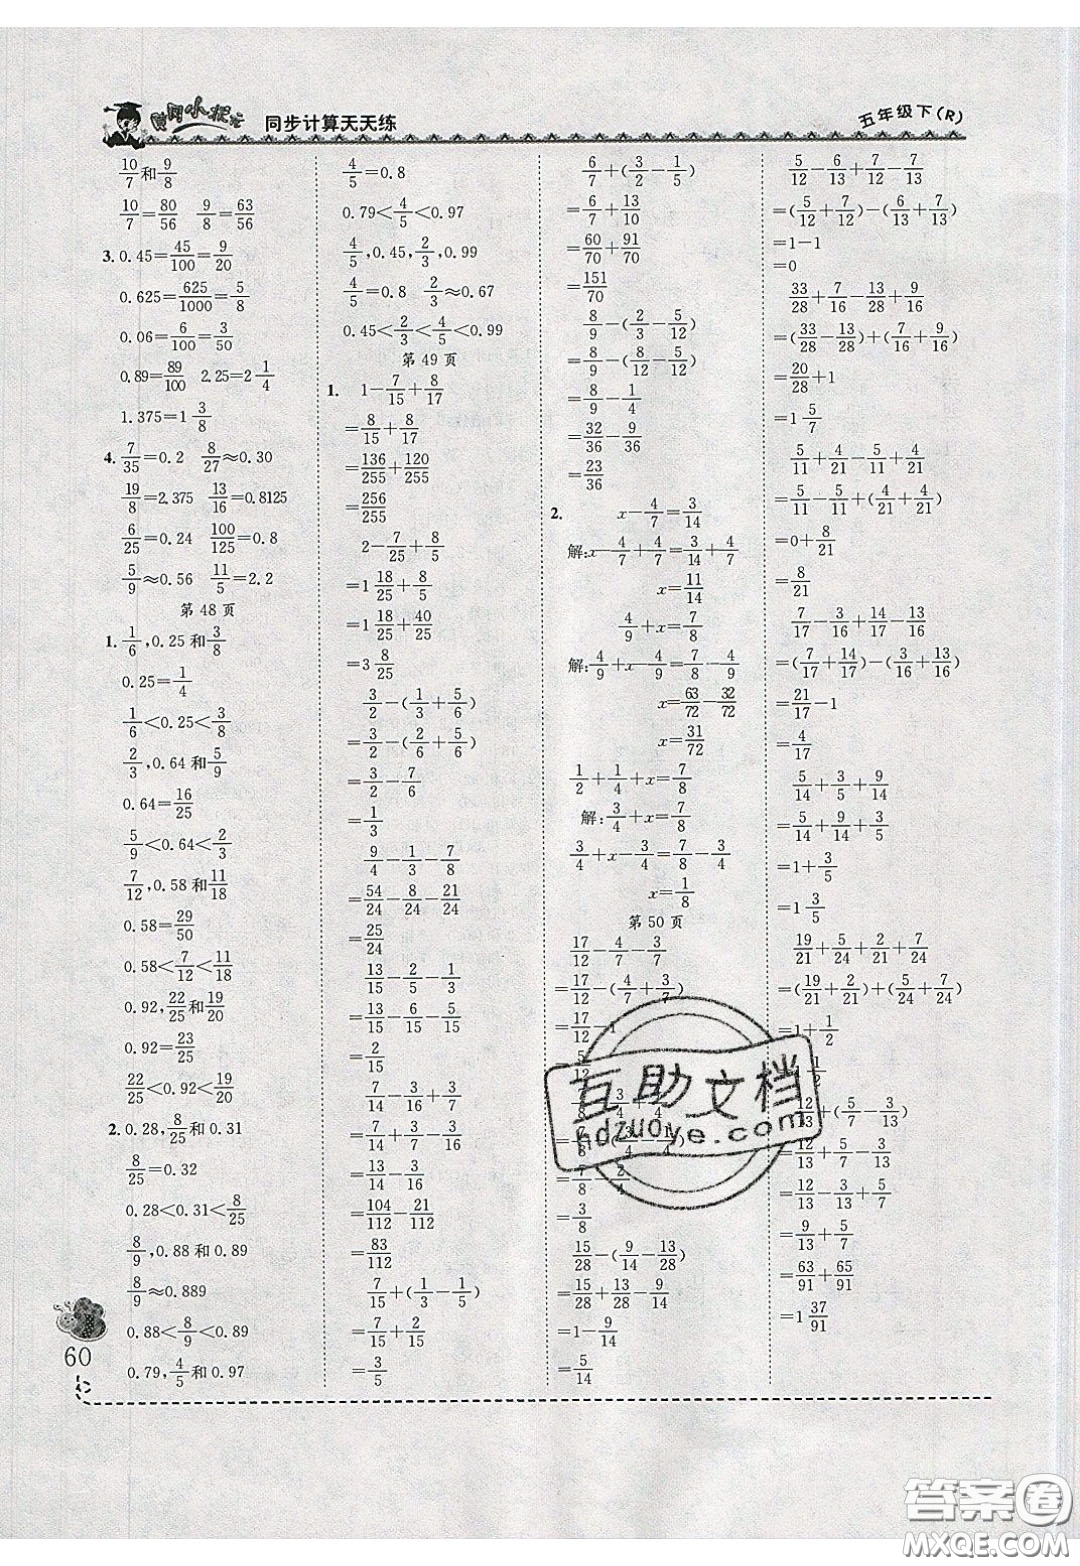 黄冈小状元 同步计算天天练
五年级下(R)
10/7和9/8
10/7=80/56 9/8=63/56
3. 0.45=45/100=9/20
0.625=625/1000=5/8
0.06=6/100=3/50
0.89=89/100 2.25=2 1/4
1.375=1 3/8
4. 7/35=0.2 8/27≈0.30
19/8=2.375 13/16=0.8125
6/25=0.24 100/125=0.8
5/9≈0.56 11/5=2.2
第48页
1. 1/6,0.25和3/8
0.25=1/4
1/6<0.25<3/8
2/3,0.64和5/9
0.64=16/25
5/9<0.64<2/3
7/12,0.58和11/18
0.58=29/50
0.58<7/12<11/18
0.92,22/25和19/20
0.92=23/25
22/25<0.92<19/20
2. 0.28,8/25和0.31
8/25=0.32
0.28<0.31<8/25
8/9,0.88和0.89
8/9≈0.889
0.88<8/9<0.89
0.79,4/5和0.97
4/5=0.8
0.79<4/5<0.97
4/5,0.45,2/3,0.99
4/5=0.8 2/3≈0.67
0.45<2/3<4/5<0.99
第49页
1. 1-7/15+8/17
=8/15+8/17
=136/255+120/255
=256/255
2-7/25+8/5
=1 18/25+8/5
=1 18/25+40/25
=3 8/25
3/2-(1/3+5/6)
=3/2-(2/6+5/6)
=3/2-7/6
=1/3
9/4-1/3-7/8
=54/24-8/24-21/24
=25/24
13/15-2/5-1/3
=13/15-6/15-5/15
=2/15
7/14-3/16+3/7
=7/14+3/7-3/16
=13/14-3/16
=104/112-21/112
=83/112
7/15+(1/3-1/5)
=7/15+2/15
=3/5
6/7+(3/2-1/5)
=6/7+13/10
=60/70+91/70
=151/70
8/9-(2/3-5/12)
=8/9-(8/12-5/12)
=8/9-1/4
=32/36-9/36
=23/36
2. x-4/7=3/14
解:x-4/7+4/7=3/14+4/7
x=11/14
4/9+x=7/8
解:4/9+x-4/9=7/8-4/9
x=63/72-32/72
x=31/72
1/2+1/4+x=7/8
解:3/4+x=7/8
3/4+x-3/4=7/8-3/4
x=1/8
第50页
17/12-4/7-3/7
=17/12-(4/7+3/7)
=17/12-1
=7/8-2/4
=3/8
15/28-(9/14-13/28)
=15/28+13/28-9/14
=1-9/14
=5/14
5/12-6/13+7/12-7/13
=(5/12+7/12)-(6/13+7/13)
=1-1
=0
33/28+7/16-13/28+9/16
=(33/28-13/28)+(7/16+9/16)
=20/28+1
=1 5/7
5/11+4/21-5/11+4/21
=5/11-5/11+(4/21+4/21)
=0+8/21
=8/21
7/17-3/16+14/17-13/16
=(7/17+14/17)-(3/16+13/16)
=21/17-1
=4/17
5/14+3/5+9/14
=5/14+9/14+3/5
=1+3/5
=1 3/5
19/21+5/24+2/21+7/24
=(19/21+2/21)+(5/24+7/24)
=1+1/2
12/13+(5/7-3/13)
=12/13+5/7-3/13
=12/13-3/13+5/7
=9/13+5/7
=63/91+65/91
=1 37/91
60
互助文档
hdzuoye.com
答案卷
MXQE.COM